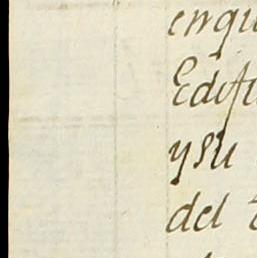 enqu
Edifi
ysu
del